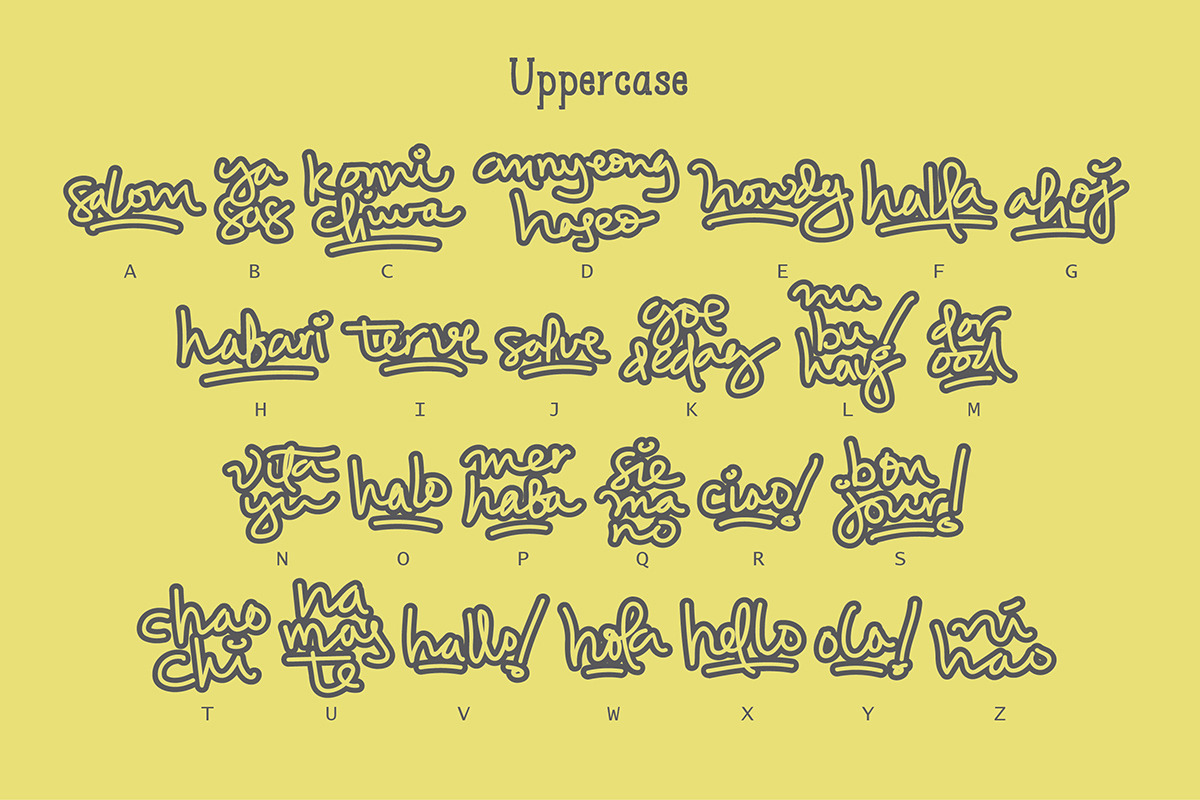 Uppercase
salom
ya
sas
konni
chiwa
annyeong
haseo
howdy
halla
ahoj
A B C D E F G
habari
terve
salve
goe
dedag
ma
bu
hay!
dor
ood
H I J K L M
vita
yu
halo
mer
haba
sie
ma
no
ciao!
bon
jour!
N O P Q R S
chao
chi
na
mas
te
hallo!
hola
hello
ola!
ní
hao
T U V W X Y Z